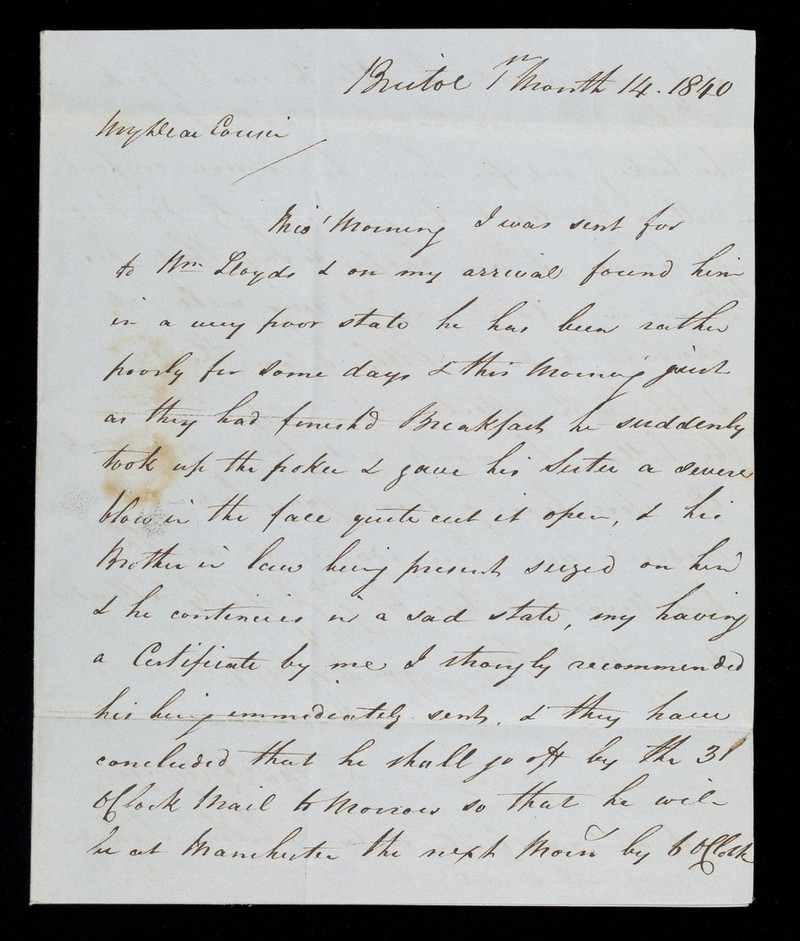 Bristol 1st Month 14. 1840
My Dear Cousin
This Morning I was sent for
to Wm Lloyds & on my arrival found him
in a very poor state he has been rather
poorly for some days & this Morning just
as they had finish'd Breakfast he suddenly
took up the poker & gave his Sister a severe
blow in the face quite cut it open, & his
Brother in law being present seized on him
& he continues in a sad state, my having
a Certificate by me I strongly recommended
his being immediately sent, & they have
concluded that he shall go off by the 3
OClock Mail to Morrow so that he will
be at Manchester the next Morng by 6 OClock